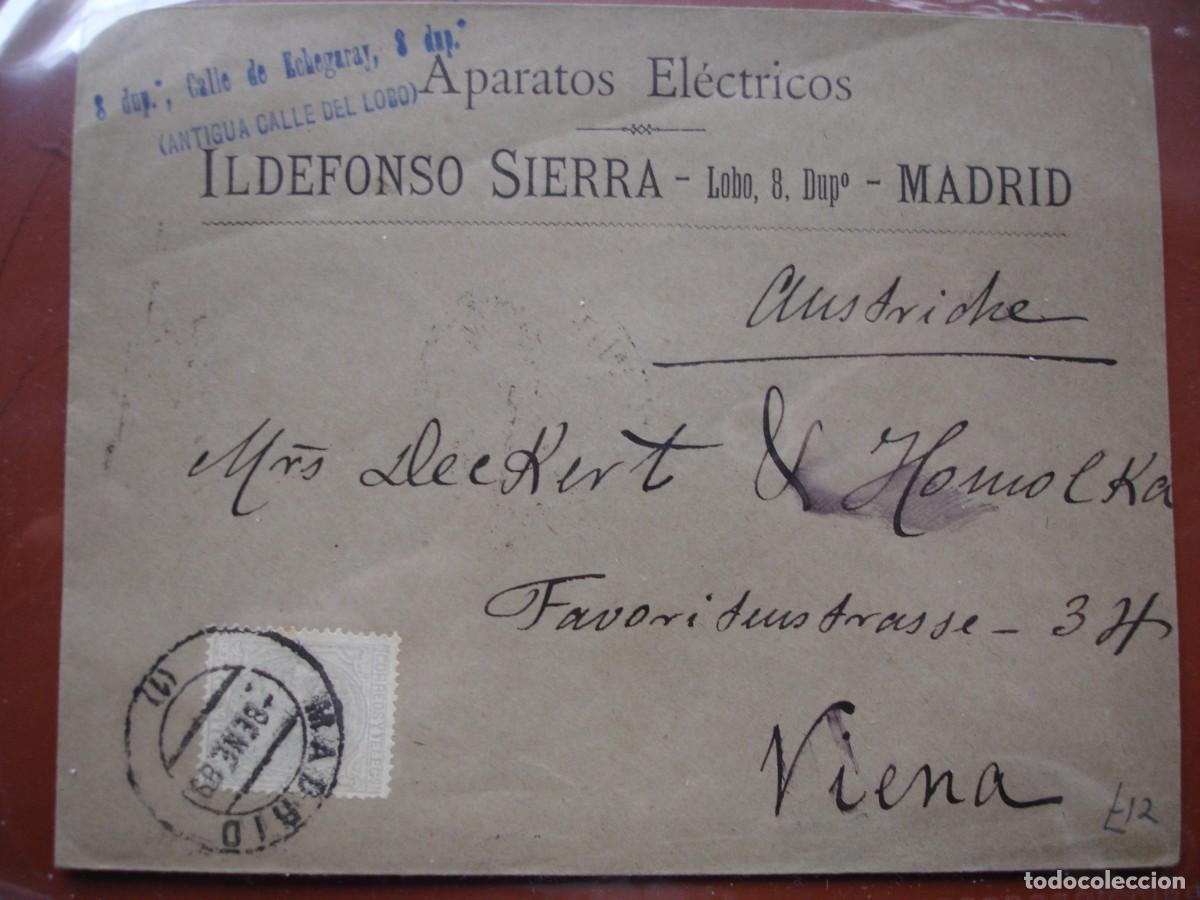 8 dup.º, Calle de Echegaray, 8 dup.º
(ANTIGUA CALLE DEL LOBO)
Aparatos Eléctricos
ILDEFONSO SIERRA - Lobo, 8, Dupº - MADRID
Austriche
Mrs Deckert & Homolka
Favoritenstrasse - 34
Viena
CORREOS Y TELEG
MADRID
-8 ENE 89
(1)
£12
todocoleccion